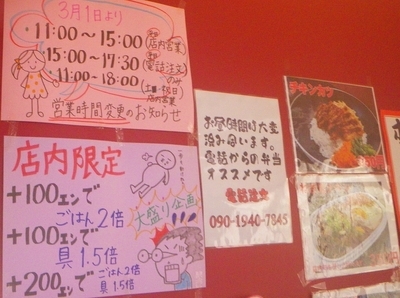 3月1日より
11:00〜15:00 店内営業
15:00〜17:30 電話注文のみ
11:00〜18:00 (土・日・祝日 店内営業
営業時間変更のお知らせ
店内限定
+100エンで
ごはん2倍
+100エンで
具1.5倍
+200エンで ごはん2倍
具1.5倍
大盛り企画
お昼時間が大変
混み合います。
電話からの弁当
オススメです
電話注文
090-1940-7845
チキンカツ